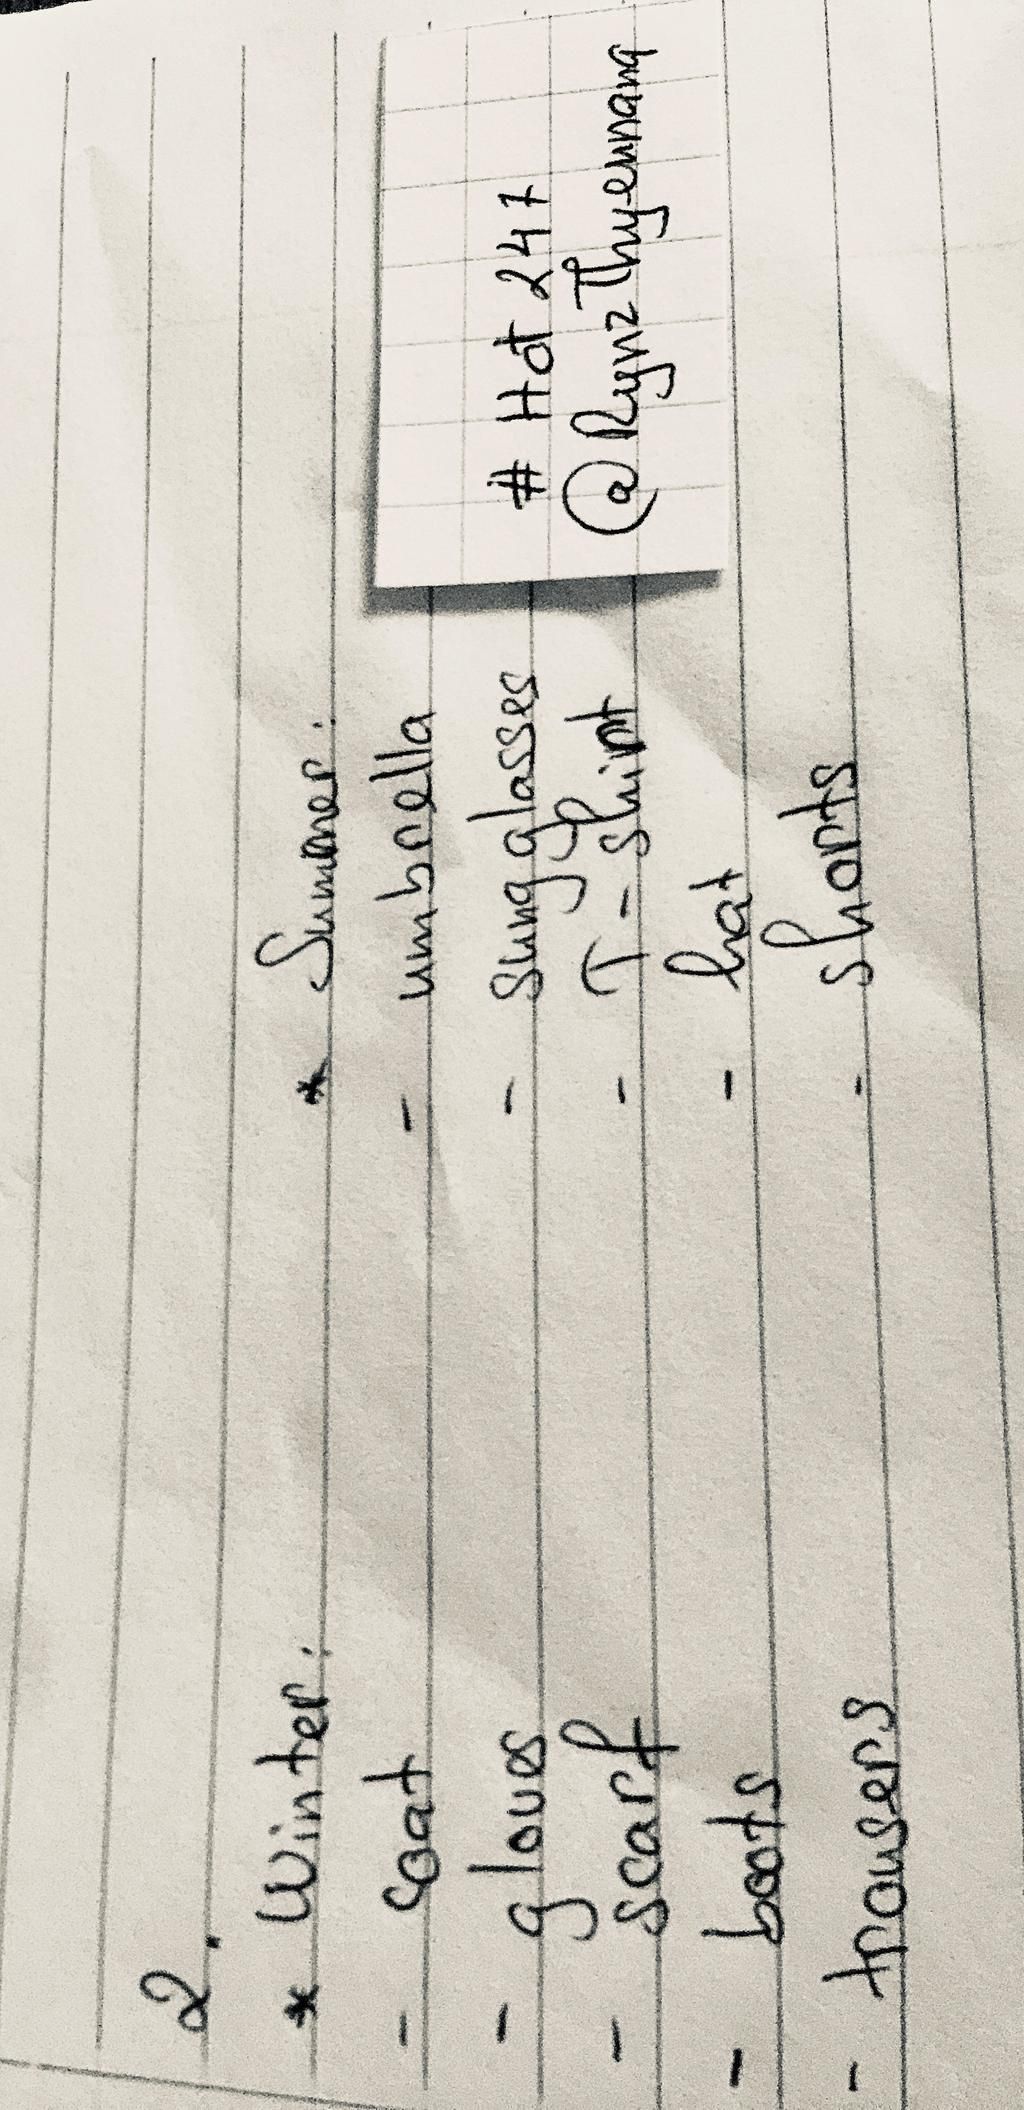 # Hot 247
@RynzThyeunang
2.
* Winter:
- coat
- gloves
- scarf
- boots
- trousers
* Summer:
- umbrella
- sunglasses
- T-shirt
- hat
- shorts